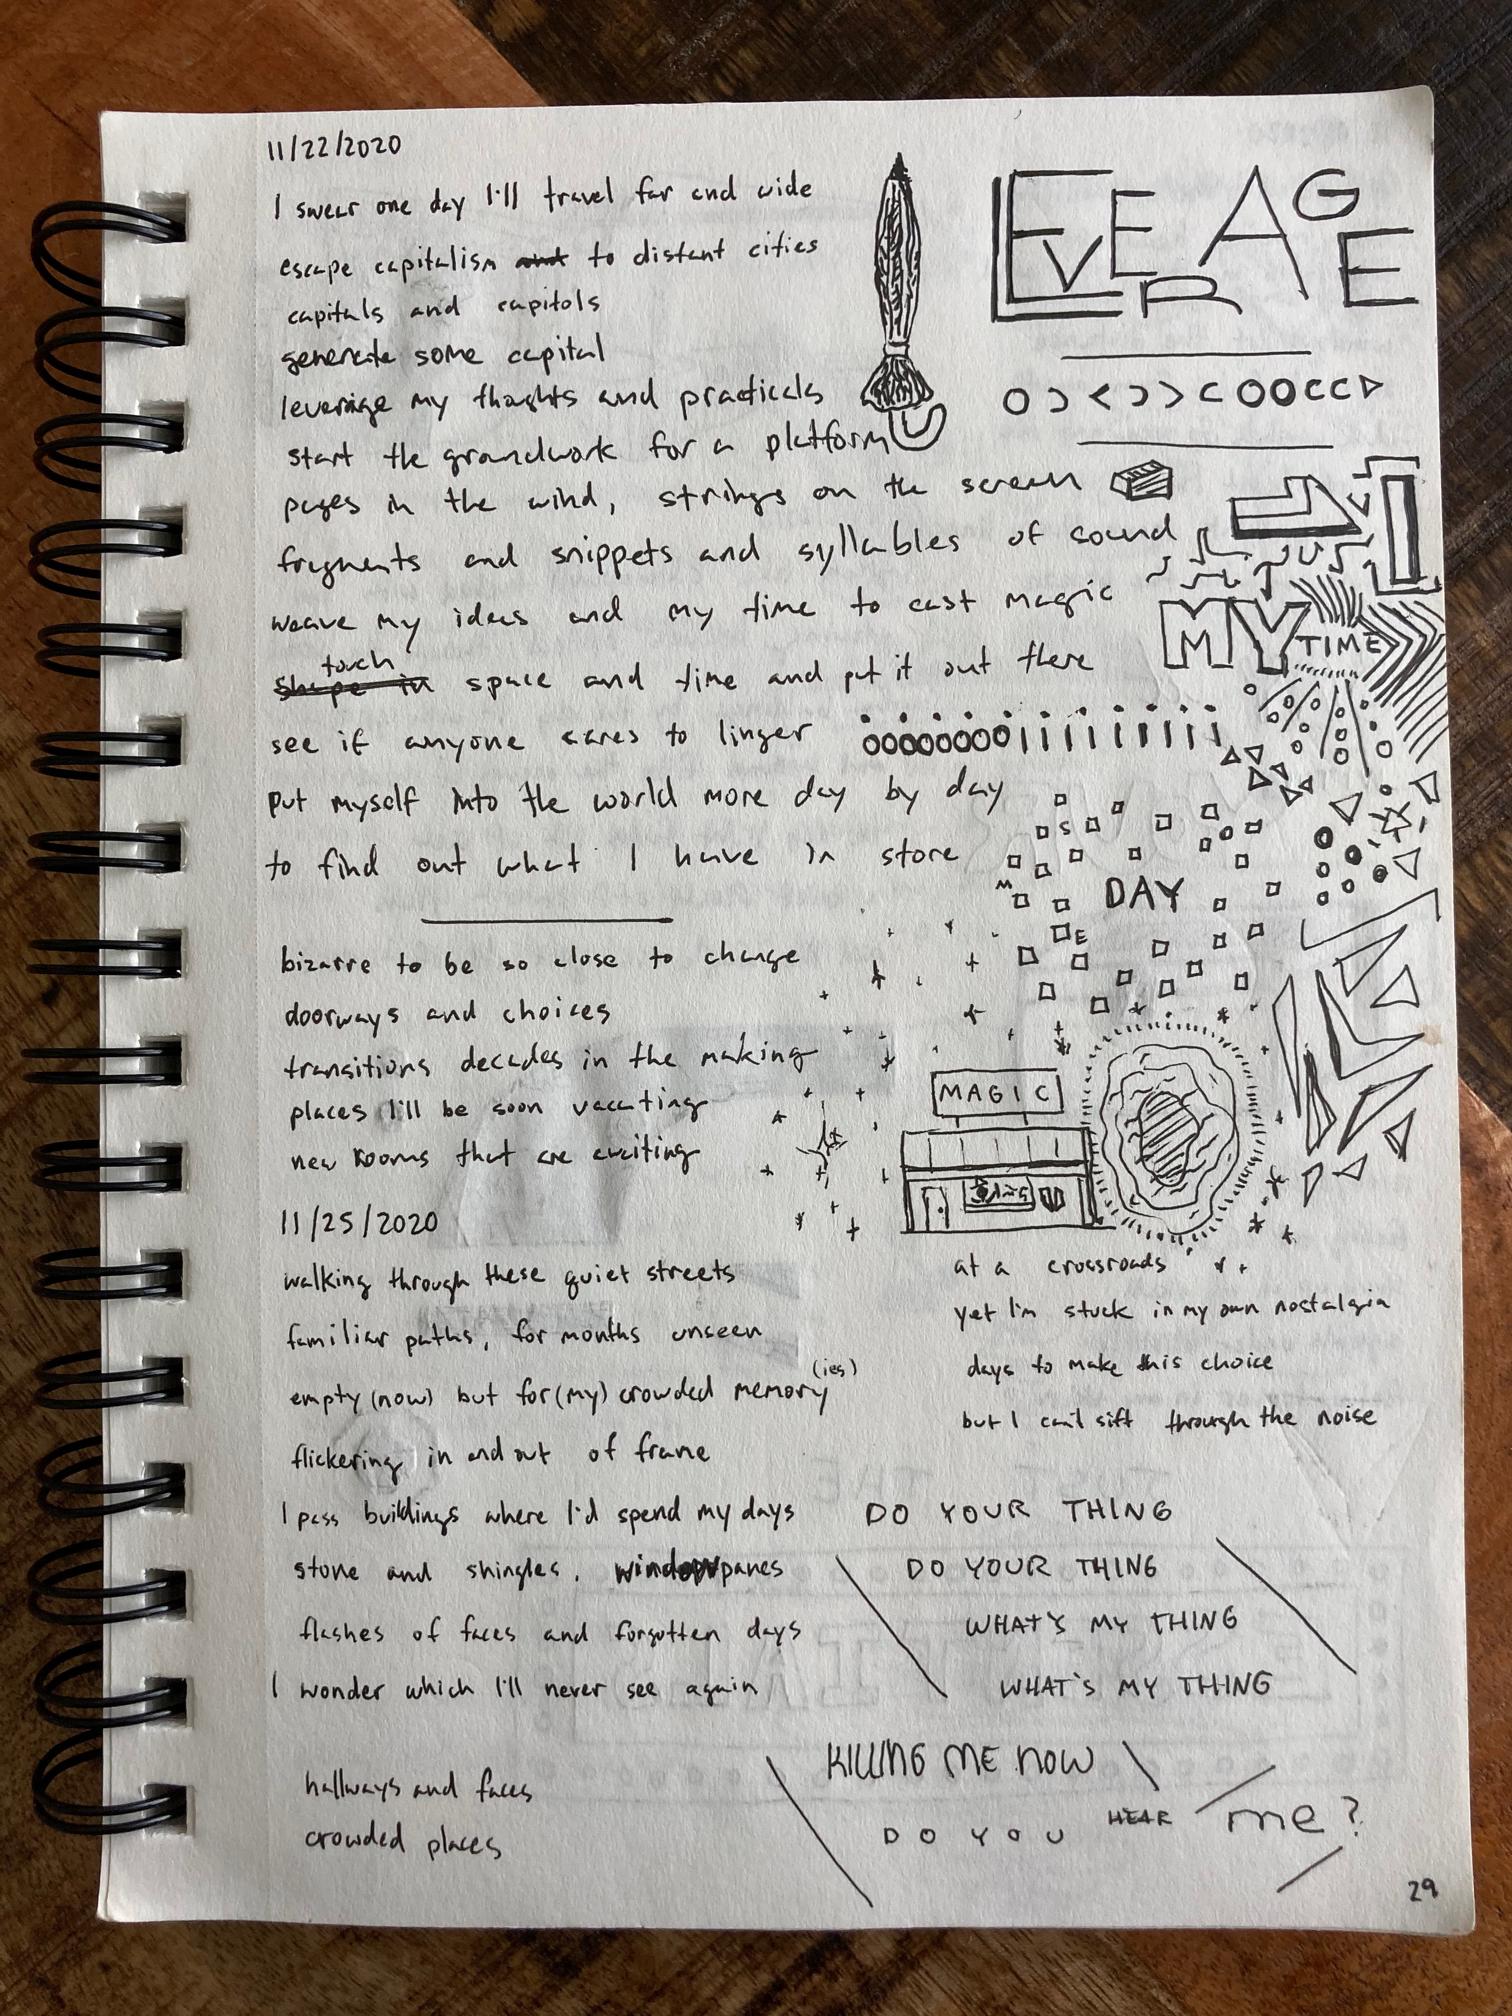 11/22/2020
I swear one day I'll travel far and wide
escape capitalism and to distant cities
capitals and capitols
generate some capital
leverage my thoghts and practicals
start the groundwork for a platform
pages in the wind, strings on the screen
fragments and snippets and syllables of sound
weave my ideas and my time to cast magic
touch
shape in space and time and put it out there
see if anyone cares to linger
put myself into the world more day by day
to find out what I have in store
LEVERAGE
MY TIME
S
M
DAY
E
MAGIC
bizarre to be so close to change
doorways and choices
transitions decades in the making
places I'll be soon vacating
new rooms that are exciting
11/25/2020
walking through these quiet streets
familiar paths, for months unseen
empty (now) but for (my) crowded memory (ies)
flickering in and out of frame
I pass buildings where I'd spend my days
stone and shingles, windowpanes
flashes of faces and forgotten days
I wonder which I'll never see again
hallways and faces
crowded places
at a crossroads
yet I'm stuck in my own nostalgia
days to make this choice
but I can't sift through the noise
DO YOUR THING
DO YOUR THING
WHAT'S MY THING
WHAT'S MY THING
KILLING ME NOW
DO YOU HEAR me?
29